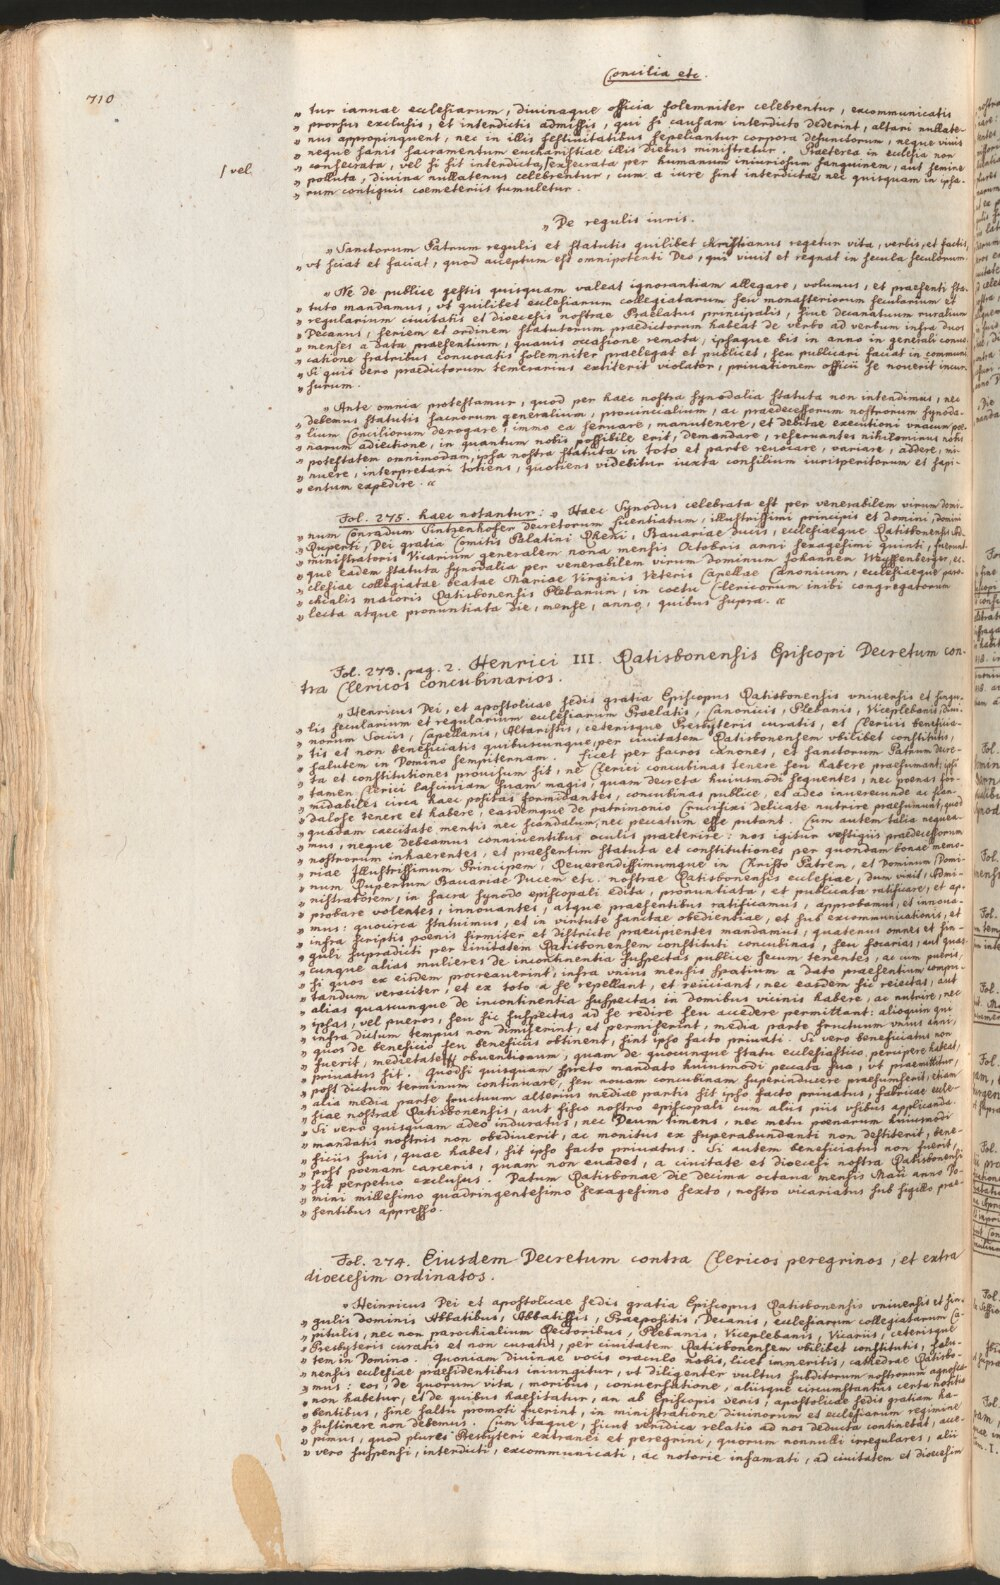 Concilia etc.
710
„ tur ianuae ecclesiarum, diuinaque officia solemniter celebrentur, excommunicatis
„ prorsus exclusis, et interdictis admissis, qui si causam interdicto dederint, altari nullate-
„ nus appropinquent, nec in illis festiuitatibus sepeliantur corpora defunctorum, neque viuis
„ neque sanis sacramentum eucharistiae illis diebus ministretur. Praeterea in ecclesia non
„ consecrata, vel si sit interdicta, ſ execrata per humanum iniuriosum sanguinem, aut semine
ſ vel
„ polluta, diuina nullatenus celebrentur, cum a iure sint interdictae nec quisquam in ipsa-
„ rum contiguis coemeteriis tumuletur.
„ De regulis iuris.
„ Sanctorum Patrum regulis et statutis quilibet christianus regetur vita, verbis, et factis,
„ vt sciat et faciat, quod acceptum est omnipotenti Deo, qui viuit et regnat in secula seculorum.
„ Ne de publice gestis quisquam valeat ignorantiam allegare, volumus, et praesenti sta-
„ tuto mandamus, vt quilibet ecclesiarum collegiatarum seu monasteriorum secularium et
„ regularium ciuitatis et dioecesis nostrae Praelatus principalis, siue decanatuum ruralium
„ Decanus, seriem et ordinem statutorum praedictorum habeat de verbo ad verbum infra duos
„ menses a data praesentium, quauis occasione remota, ipsaque bis in anno in generali conuo-
„ catione fratribus conuocatis solemniter praelegat et publicet, seu publicari faciat in communi
„ Si quis vero praedictorum temerarius extiterit violator, priuationem officii se nouerit incur-
„ surum.
„ Ante omnia protestamur, quod per haec nostra synodalia statuta non intendimus, nec
„ debemus statutis sacrorum generalium, prouincialium, ac praedecessorum nostrorum synoda-
„ lium Conciliorum derogare, immo ea seruare, manutenere, et debitae executioni vnacum poe-
„ narum adiectione, in quantum nobis possibile erit, demandare, reseruantes nihilominus nobis
„ potestatem omnimodam, ipsa nostra statuta in toto et parte reuocare, variare, addere, mi-
„ nuere, interpretari totiens, quotiens videbitur iuxta consilium iurisperitorum et sapi-
„ entum expedire. “
Fol. 275. haec notantur: „ Haec Synodus celebrata est per venerabilem virum domi-
„ num Conradum Sintzenhofer decretorum licentiatum, illustrissimi principis et domini, domini
„ Ruperti, Dei gratia Comitis Palatini Rheni, Bauariae ducis, ecclesiaeque Ratisbonensis Ad-
„ ministratoris Vicarium generalem nona mensis Octobris anni sexagesimi quinti, fuerunt
„ que eadem statuta synodalia per venerabilem virum dominum Johannen Weyssenberger, ec-
„ clesiae collegiatae beatae Mariae Virginis Veteris Capellae Canonicum, ecclesiaeque paro-
„ chialis maioris Ratisbonensis Plebanum, in coetu Clericorum inibi congregatorum
„ lecta atque pronuntiata die, mense, anno, quibus supra. “
Fol. 273. pag. 2. Henrici III. Ratisbonensis Episcopi Decretum con-
tra Clericos concubinarios.
„ Henricus Dei, et apostolicae sedis gratia Episcopus Ratisbonensis vniuersis et singu-
„ lis secularium et regularium ecclesiarum Praelatis, Canonicis, Plebanis, Viceplebanis, diui-
„ norum Sociis, Capellanis, Altaristis, ceterisque Presbyteris curatis, et Clericis beneficia-
„ tis et non beneficiatis quibuscunque, per ciuitatem Ratisbonensem vbilibet constitutis,
„ salutem in Domino sempiternam. Licet per sacros canones, et sanctorum Patrum decre-
„ ta et constitutiones prouisum sit, ne Clerici concubinas tenere seu habere praesumant; ipsi
„ tamen Clerici lasciuiam suam magis, quam decreta huiusmodi sequentes, nec poenas for-
„ midabiles circa haec positas formidantes, concubinas publice, et adeo inuerecunde ac scan-
„ dalose tenere et habere, easdemque de patrimonio Crucifixi delicate nutrire praesumunt, quod
„ quadam caecitate mentis nec scandalum, nec peccatum esse putant. Cum autem talia nequea-
„ mus, neque debeamus conniuentibus oculis praeterire: nos igitur vestigiis praedecessorum
„ nostrorum inhaerentes, et praesertim statuta et constitutiones per quondam bonae memo-
„ riae Illustrissimum Principem, Reuerendissimumque in Kristo Patrem, et Dominum Domi-
„ num Rupertum Bauariae Ducem etc. nostrae Ratisbonensis ecclesiae, dum vixit, Admi-
„ nistratorem, in sacra synodo episcopali edita, pronuntiata, et publicata ratificare, et ap-
„ probare volentes, innouantes, atque praesentibus ratificamus, approbamus, et innoua-
„ mus: quocirca statuimus, et in virtute sanctae obedientiae, et sub excommunicationis, et
„ infra scriptis poenis firmiter et districte praecipientes mandamus, quatenus omnes et sin-
„ guli supradicti per ciuitatem Ratisbonensem constituti concubinas, seu focarias, aut quas-
„ cunque alias mulieres de incontinentia suspectas publice secum tenentes, ac cum pueris,
„ si quos ex eisdem procreauerint, infra vnius mensis spatium a dato praesentium compu-
„ tandum veraciter, et ex toto a se repellant, et reiiciant, nec easdem sic reiectas, aut
„ alias quascunque de incontinentia suspectas in domibus vicinis habere, ac nutrire, nec
„ ipsas, vel pueros, seu sic suspectas ad se redire seu accedere permittant: alioquin qui
„ infra dictum tempus non dimiserint, et permiserint, media parte fructuum vnius anni,
„ quos de beneficio seu beneficiis obtinent, sint ipso facto priuati. Si vero beneficiatus non
„ fuerit, medietate obuentionum, quam de quocunque statu ecclesiastico, percipere habeat,
„ priuatus sit. Quodsi quisquam spreto mandato huiusmodi peccata sua, vt praemittitur,
„ post dictum terminum continuare, seu nouam concubinam superinducere praesumserit, etiam
„ alia media parte fructuum alterius mediae partis sit ipso facto priuatus, fabricae eccle-
„ siae nostrae Ratisbonensis, aut fisco nostro episcopali cum aliis piis vsibus applicanda.
„ Si vero quisquam adeo induratus, nec Deum timens, nec metu poenarum huiusmodi
„ mandatis nostris non obediuerit, ac monitus ex superabundanti non destiterit, bene-
„ ficiis suis, quae habet, sit ipso facto priuatus. Si autem beneficiatus non fuerit,
„ post poenam carceris, quam non euadet, a ciuitate et dioecesi nostra Ratisbonensi
„ sit perpetuo exclusus. Datum Ratisbonae die decima octaua mensis Maii anno Do-
„ mini millesimo quadringentesimo sexagesimo sexto, nostro vicariatus sub sigillo prae-
„ sentibus appresso.
Fol. 274. Eiusdem Decretum contra Clericos peregrinos, et extra
dioecesim ordinatos.
„ Heinricus Dei et apostolicae sedis gratia Episcopus Ratisbonensis vniuersis et sin-
„ gulis dominis Abbatibus, Abbatissis, Praepositis, Decanis, ecclesiarum collegiatarum Ca-
„ pitulis, nec non parochialium Rectoribus, Plebanis, Viceplebanis, Vicariis, ceterisque
„ Presbyteris curatis et non curatis, per ciuitatem Ratisbonensem vbilibet constitutis, salu-
„ tem in Domino. Quoniam diuinae vocis oraculo nobis, licet immeritis, cathedrae Ratisbo-
„ nensis ecclesiae praesidentibus iniungitur, vt diligenter vultus subditorum nostrorum agnosca-
„ mus: eos, de quorum vita, moribus, conuersatione, aliisque circumstantiis certa notitia
„ non habetur, et de quibus haesitatur, an ab Episcopis veris, apostolicae sedis gratiam ha-
„ bentibus, sine saltu promoti fuerint, in ministratione diuinorum et ecclesiarum regimine
„ sustinere non debemus. Cum itaque, sicut veridica relatio ad nos deducta continebat, acce-
„ pimus, quod plures Presbyteri extranei et peregrini, quorum nonnulli irregulares, alii
„ vero suspensi, interdicti, excommunicati, ac notorie infamati, ad ciuitatem et dioecesim